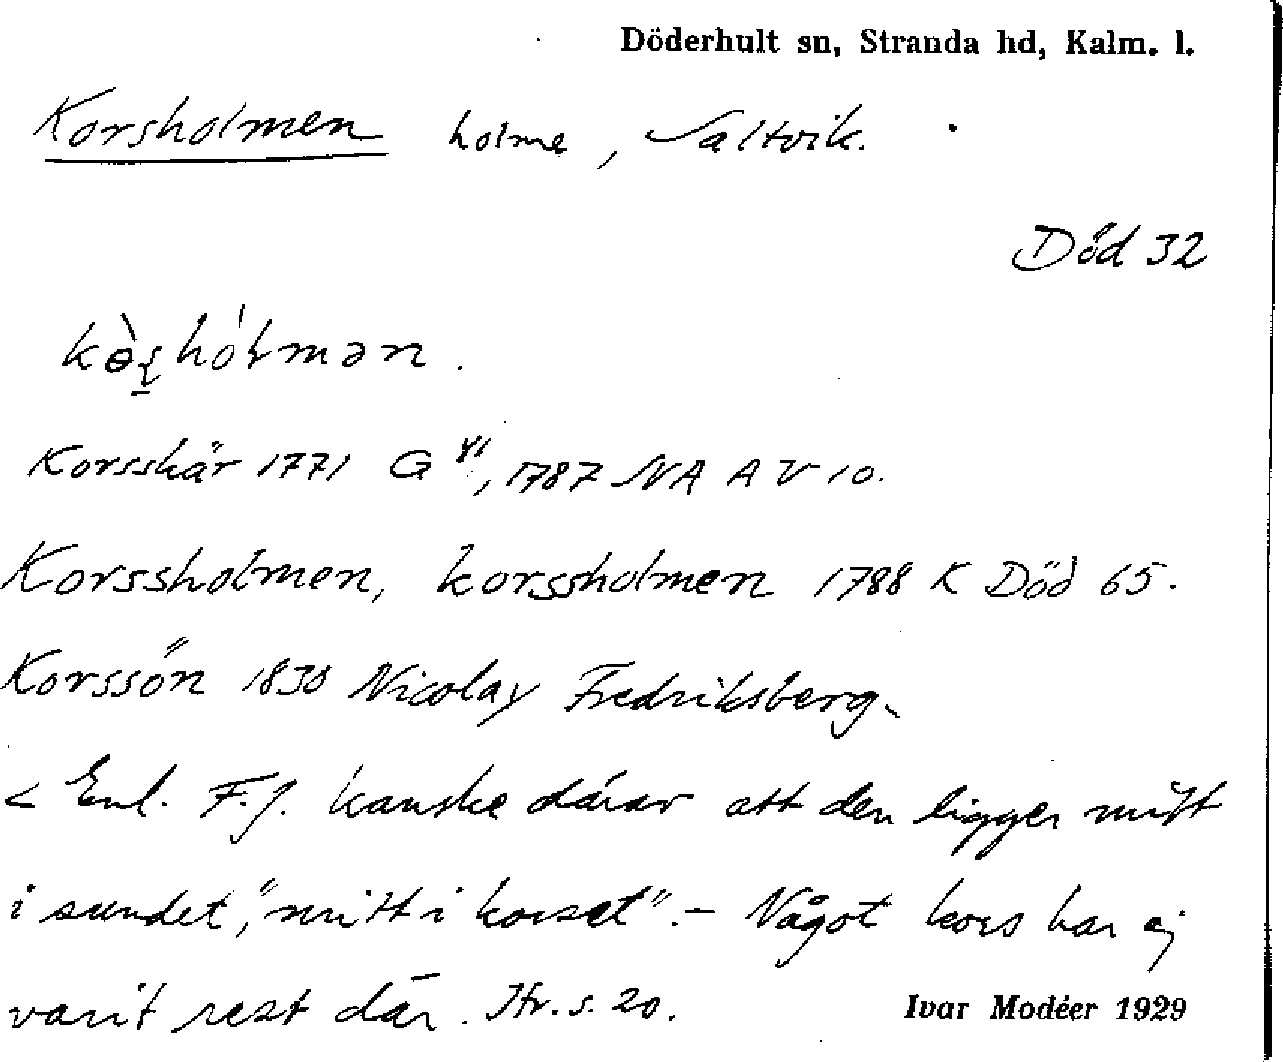 Döderhult sn, Stranda hd, Kalm. l.
Korsholmen holme, Saltvik.
Död 32
Korsskär 1771 G 41, 1787 NA A V 10.
Korssholmen, korssholmen 1788 K Död 65.
Korssön 1830 Nicolay Fredriksberg.
< Enl. F.J. kanske därav att den ligger mitt
i sundet, "mitt i korset". – Något kors har ej
varit rest där. Jfr. s. 20.
Ivar Modéer 1929